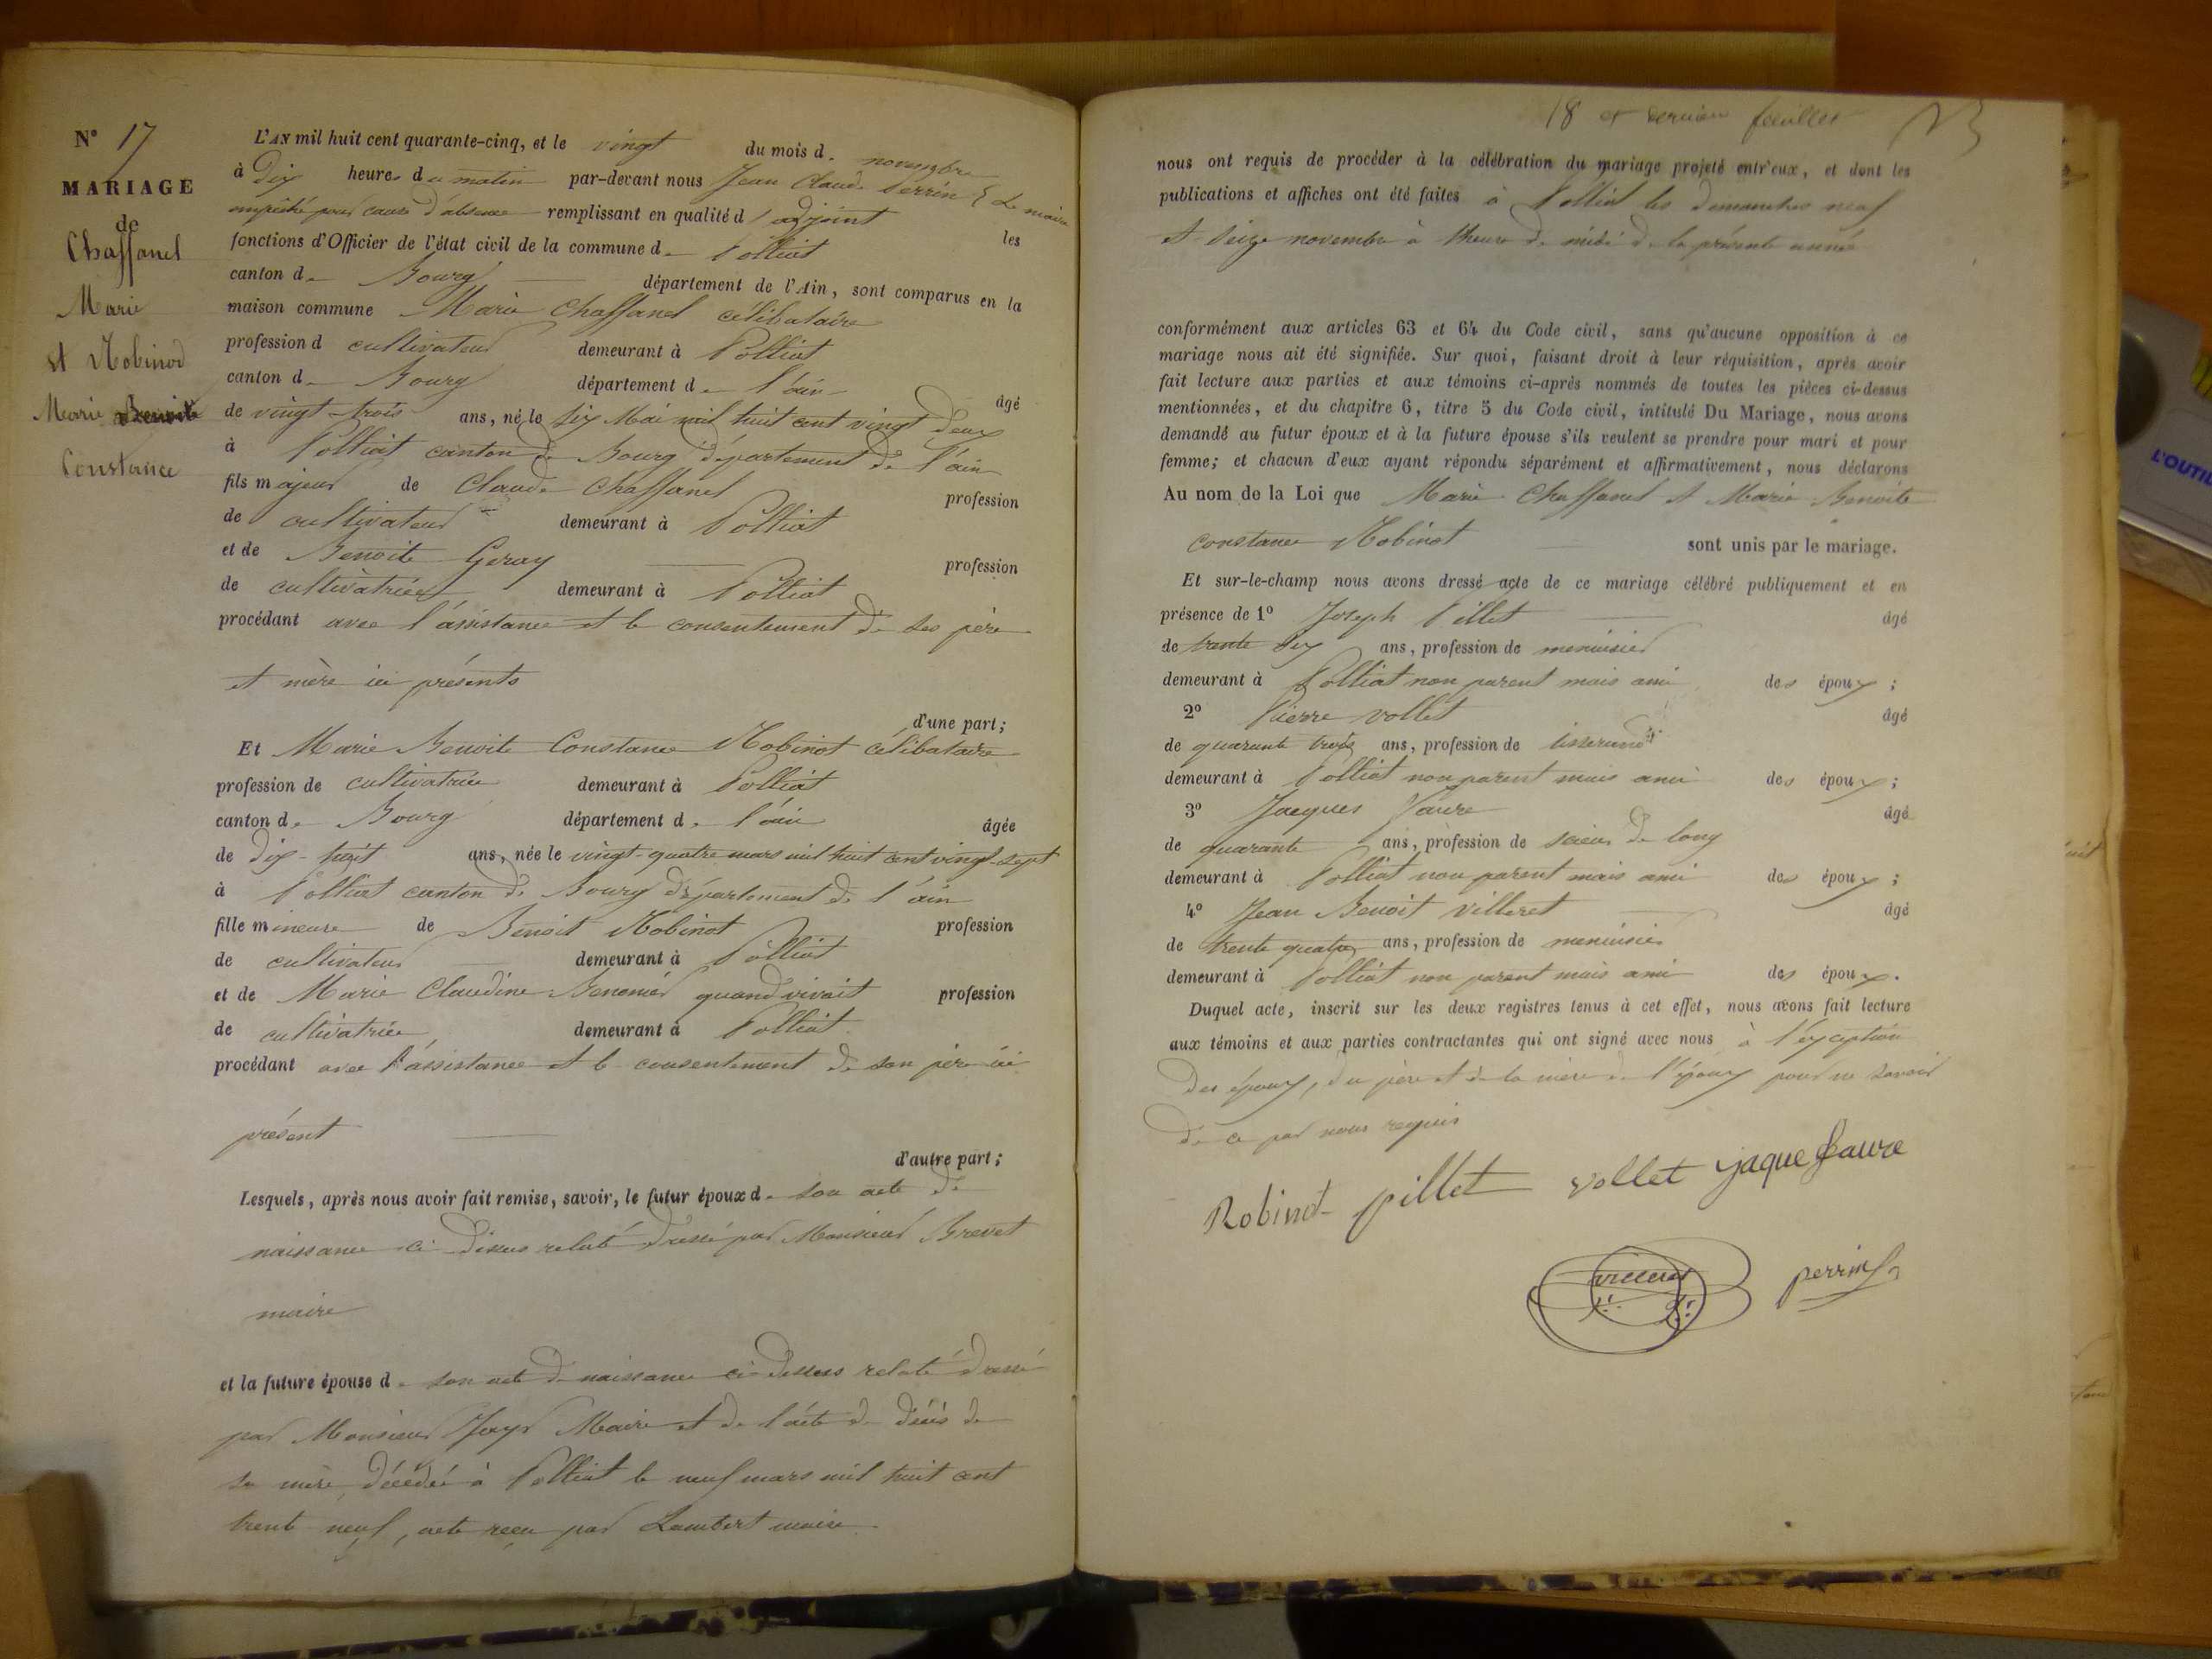 N° 17
MARIAGE
de
Chaffanel
Marie
et Robinod
Marie Benoite
Constance
L'AN mil huit cent quarante-cinq, et le vingt du mois de novembre
à dix heures du matin par-devant nous Jean Claude Perrin Le maire
empêché pour cause d'absence remplissant en qualité d'adjoint les
fonctions d'Officier de l'état civil de la commune de Polliat
canton de Bourg département de l'Ain, sont comparus en la
maison commune Marie Chaffanel célibataire
profession d cultivateur demeurant à Polliat
canton de Bourg département de l'ain âgé
de vingt-trois ans, né le six Mai mil huit cent vingt deux
à Polliat canton de Bourg département de l'ain
fils majeur de Claude Chaffanel profession
de cultivateur demeurant à Polliat
et de Benoite Geray profession
de cultivatrice demeurant à Polliat
procédant avec l'assistance et le consentement de ses père
et mère ici présents
d'une part;
Et Marie Benoite Constance Robinot célibataire
profession de cultivatrice demeurant à Polliat
canton de Bourg département de l'ain âgée
de dix-huit ans, née le vingt-quatre mars mil huit cent vingt-sept
à Polliat canton de Bourg département de l'ain
fille mineure de Benoit Robinot profession
de cultivateur demeurant à Polliat
et de Marie Claudine quand vivait profession
de cultivatrice demeurant à Polliat
procédant avec l'assistance et le consentement de son père ici
présent
d'autre part;
Lesquels, après nous avoir fait remise, savoir, le futur époux de son acte de
naissance ci-dessus relaté dressé par Monsieur Brevet
maire
et la future épouse de son acte de naissance ci-dessus relaté dressé
par Monsieur Jayr Maire et de l'acte de décès de
sa mère, décédée à Polliat le neuf mars mil huit cent
trente neuf, acte reçu par Lambert maire
18 et dernier feuillet
nous ont requis de procéder à la célébration du mariage projeté entr'eux, et dont les
publications et affiches ont été faites à Polliat les dimanches neuf
et seize novembre à l'heure de midi de la présente année
conformément aux articles 63 et 64 du Code civil, sans qu'aucune opposition à ce
mariage nous ait été signifiée. Sur quoi, faisant droit à leur réquisition, après avoir
fait lecture aux parties et aux témoins ci-après nommés de toutes les pièces ci-dessus
mentionnées, et du chapitre 6, titre 5 du Code civil, intitulé Du Mariage, nous avons
demandé au futur époux et à la future épouse s'ils veulent se prendre pour mari et pour
femme; et chacun d'eux ayant répondu séparément et affirmativement, nous déclarons
Au nom de la Loi que Marie Chaffanel et Marie Benoite
Constance Robinot sont unis par le mariage.
Et sur-le-champ nous avons dressé acte de ce mariage célébré publiquement et en
présence de 1° Joseph Pillet âgé
de trente six ans, profession de menuisier
demeurant à Polliat non parent mais ami des époux;
2° Pierre Vollet âgé
de quarante trois ans, profession de tisserand
demeurant à Polliat non parent mais ami des époux;
3° Jacques Faure âgé
de quarante ans, profession de scieur de long
demeurant à Polliat non parent mais ami des époux;
4° Jean Benoit Villeret âgé
de trente quatre ans, profession de menuisier
demeurant à Polliat non parent mais ami des époux.
Duquel acte, inscrit sur les deux registres tenus à cet effet, nous avons fait lecture
aux témoins et aux parties contractantes qui ont signé avec nous à l'exception
des époux, du père et de la mère de l'époux pour ne savoir
de ce par nous requis
Robinot pillet vollet jaque faure
villeret perrin
L'OUTIL